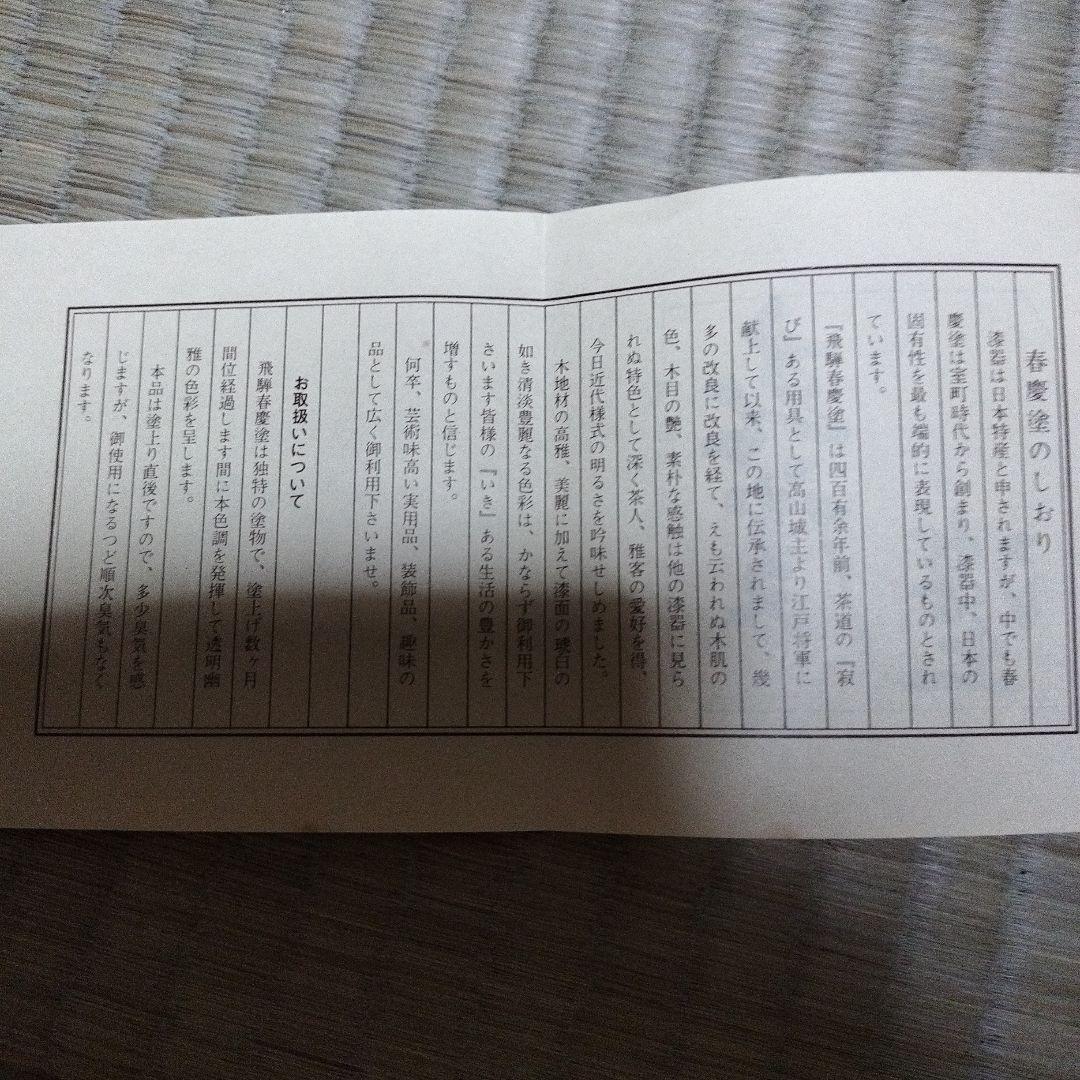 春慶塗のしおり
漆器は日本特産と申されますが、中でも春
慶塗は室町時代から創まり、漆器中、日本の
固有性を最も端的に表現しているものとされ
ています。
『飛騨春慶塗』は四百有余年前、茶道の『寂
び』ある用具として高山城主より江戸将軍に
献上して以来、この地に伝承されまして、幾
多の改良に改良を経て、えも云われぬ木肌の
色、木目の艶、素朴な感触は他の漆器に見ら
れぬ特色として深く茶人、雅客の愛好を得、
今日近代様式の明るさを吟味せしめました。
木地材の高雅、美麗に加えて漆面の琥白の
如き清淡豊麗なる色彩は、かならず御利用下
さいます皆様の『いき』ある生活の豊かさを
増すものと信じます。
何卒、芸術味高い実用品、装飾品、趣味の
品として広く御利用下さいませ。
お取扱いについて
飛騨春慶塗は独特の塗物で、塗上げ数ヶ月
間位経過します間に本色調を発揮して透明幽
雅の色彩を呈します。
本品は塗上り直後ですので、多少臭気を感
じますが、御使用になるつど順次臭気もなく
なります。